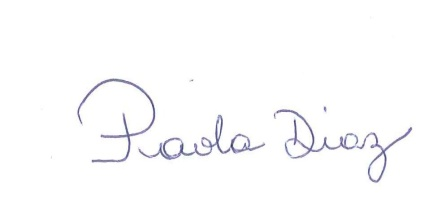 Paola Diaz